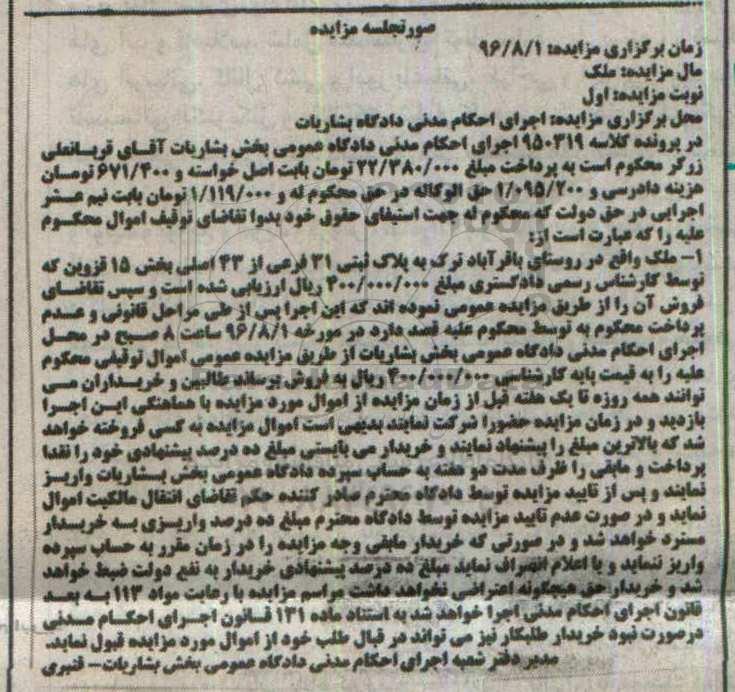 صورتجلسه مزایده
زمان برگزاری مزایده: ۹۶/۸/۱
مال مزایده: ملک
نوبت مزایده: اول
محل برگزاری مزایده: اجرای احکام مدنی دادگاه بشاریات
در پرونده کلاسه ۹۵۰۳۱۹ اجرای احکام مدنی دادگاه عمومی بخش بشاریات آقای قربانعلی
زرگر محکوم است به پرداخت مبلغ ۲۲/۳۸۰/۰۰۰ تومان بابت اصل خواسته و ۶۷۱/۴۰۰ تومان
هزینه دادرسی و ۱/۰۹۵/۲۰۰ حق الوکاله در حق محکوم له و ۱/۱۱۹/۰۰۰ تومان بابت نیم عشر
اجرایی در حق دولت که محکوم له جهت استیفای حقوق خود بدوا تقاضای توقیف اموال محکوم
علیه را که عبارت است از:
۱- ملک واقع در روستای باقرآباد ترک به پلاک ثبتی ۳۱ فرعی از ۴۳ اصلی بخش ۱۵ قزوین که
توسط کارشناس رسمی دادگستری مبلغ ۴۰۰/۰۰۰/۰۰۰ ریال ارزیابی شده است و سپس تقاضای
فروش آن را از طریق مزایده عمومی نموده اند که این اجرا پس از طی مراحل قانونی و عدم
پرداخت محکوم به توسط محکوم علیه قصد دارد در مورخه ۹۶/۸/۱ ساعت ۸ صبح در محل
اجرای احکام مدنی دادگاه عمومی بخش بشاریات از طریق مزایده عمومی اموال توقیفی محکوم
علیه را به قیمت پایه کارشناسی ۴۰۰/۰۰۰/۰۰۰ ریال به فروش برساند طالبین و خریداران می
توانند همه روزه تا یک هفته قبل از زمان مزایده از اموال مورد مزایده با هماهنگی این اجرا
بازدید و در زمان مزایده حضورا شرکت نمایند بدیهی است اموال مزایده به کسی فروخته خواهد
شد که بالاترین مبلغ را پیشنهاد نمایند و خریدار می بایستی مبلغ ده درصد پیشنهادی خود را نقدا
پرداخت و مابقی را ظرف مدت دو هفته به حساب سپرده دادگاه عمومی بخش بشاریات واریز
نمایند و پس از تایید مزایده توسط دادگاه محترم صادر کننده حکم تقاضای انتقال مالکیت اموال
نماید و در صورت عدم تایید مزایده توسط دادگاه محترم مبلغ ده درصد واریزی به خریدار
مسترد خواهد شد و در صورتی که خریدار مابقی وجه مزایده را در زمان مقرر به حساب سپرده
واریز ننماید و یا اعلام انصراف نماید مبلغ ده درصد پیشنهادی خریدار به نفع دولت ضبط خواهد
شد و خریدار حق هیچگونه اعتراضی نخواهد داشت مراسم مزایده با رعایت مواد ۱۱۳ به بعد
قانون اجرای احکام مدنی اجرا خواهد شد به استناد ماده ۱۳۱ قانون اجرای احکام مدنی
درصورت نبود خریدار طلبکار نیز می تواند در قبال طلب خود از اموال مورد مزایده قبول نماید.
مدیر دفتر شعبه اجرای احکام مدنی دادگاه عمومی بخش بشاریات- قنبری